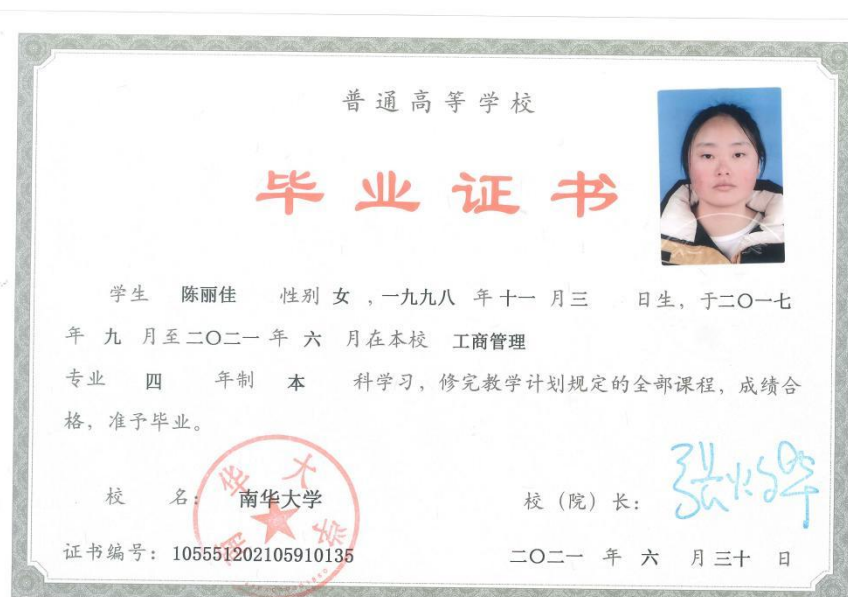 普通高等学校
毕业证书
学生 陈丽佳 性别 女 ，一九九八 年 十一 月 三 日生，于二〇一七
年 九 月至 二〇二一 年 六 月在本校 工商管理
专业 四 年制 本 科学习，修完教学计划规定的全部课程，成绩合
格，准予毕业。
校 名： 南华大学
校（院）长：
证书编号：105551202105910135
二〇二一 年 六 月 三十 日
南华大学